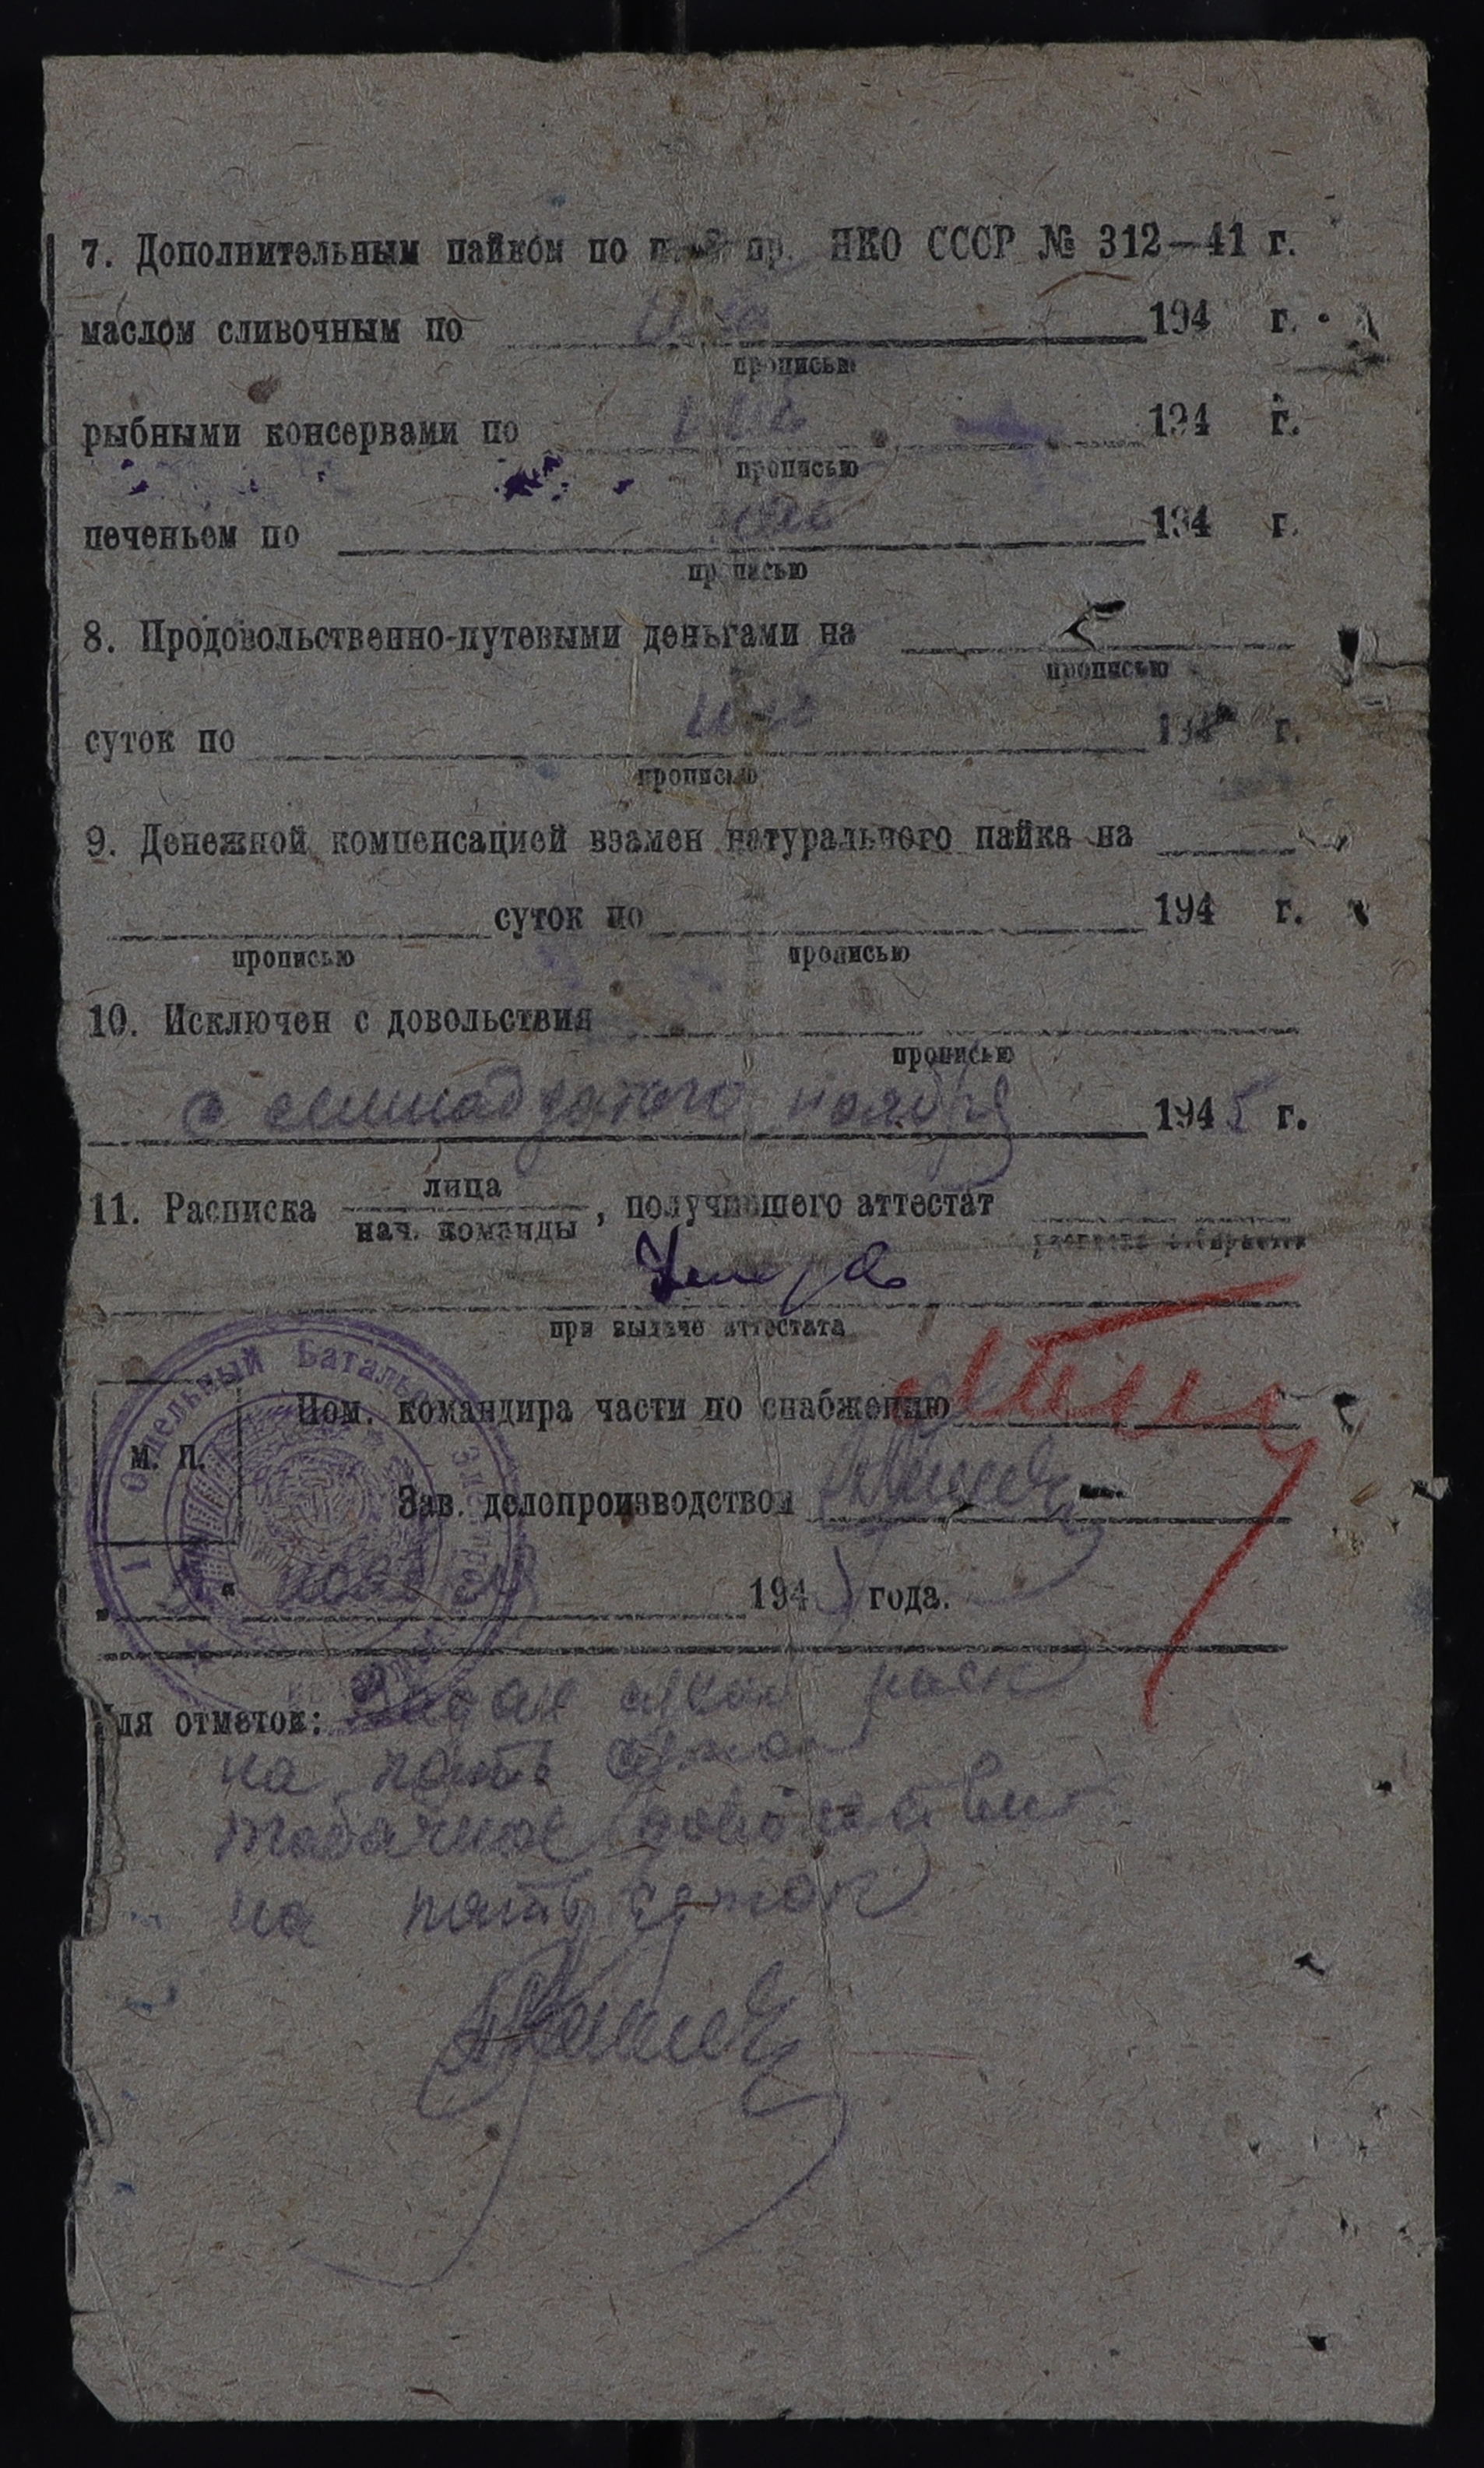 7. Дополнительным пайком по п. 3 пр. НКО СССР № 312—41 г.
маслом сливочным по 194 г.
прописью
рыбными консервами по 194 г.
прописью
печеньем по 194 г.
прописью
8. Продовольственно-путевыми деньгами на
прописью
суток по 194 г.
прописью
9. Денежной компенсацией взамен натурального пайка на
суток по 194 г.
прописью прописью
10. Исключен с довольствия
прописью
с семнадцатого ноября 1945 г.
11. Расписка лица
нач. команды, получившего аттестат
расписка отбирается
при выдаче аттестата
Отдельный Батальон
Пом. командира части по снабжению
М. П.
Зав. делопроизводством
ноября 1945 года.
Для отметок: Выдан сухой паек
на пять суток
табачное довольствие
на пять суток